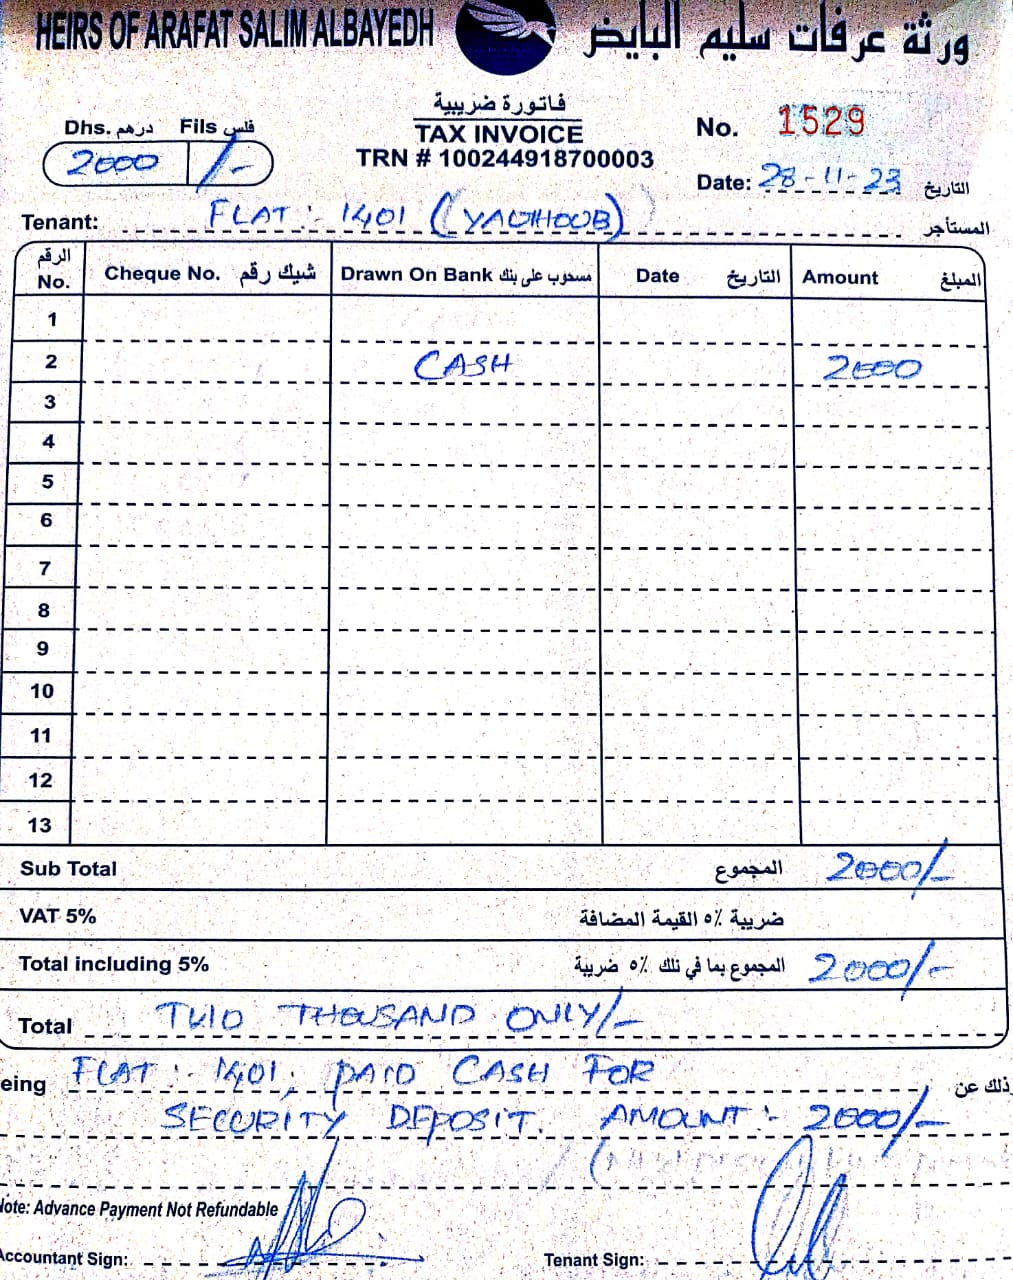 HEIRS OF ARAFAT SALIM ALBAYEDH ورثة عرفات سليم البايض
فاتورة ضريبية
TAX INVOICE
TRN # 100244918700003
Dhs. درهم Fils فلس
2000 /-
No. 1529
Date: 28-11-23 التاريخ
Tenant: FLAT:- 1401 (YAGHOOB) المستأجر
الرقم No. Cheque No. شيك رقم Drawn On Bank مسحوب على بنك Date التاريخ Amount المبلغ
1
2 CASH 2000
3
4
5
6
7
8
9
10
11
12
13
Sub Total المجموع 2000/-
VAT 5% ضريبة ٥٪ القيمة المضافة
Total including 5% المجموع بما في ذلك ٥٪ ضريبة 2000/-
Total TWO THOUSAND ONLY/-
eing FLAT:- 1401, PAID CASH FOR ذلك عن
SECURITY DEPOSIT. AMOUNT:- 2000/-
Note: Advance Payment Not Refundable
Accountant Sign: Tenant Sign: